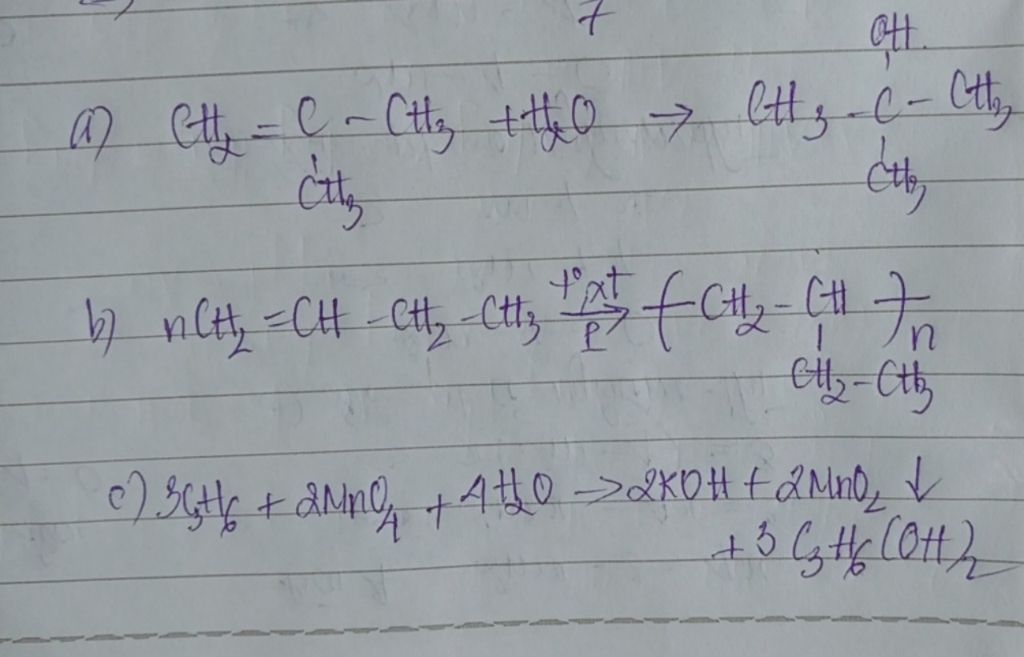 7
OH
a) CH₂ = C - CH₃ + H₂O → CH₃ - C - CH₃
CH₃ CH₃
b) nCH₂ = CH - CH₂ - CH₃ t° xt P → ( CH₂ - CH )n
CH₂ - CH₃
c) 3C₃H₆ + 2MnO₄ + 4H₂O → 2KOH + 2MnO₂ ↓
+ 3 C₃H₆(OH)₂